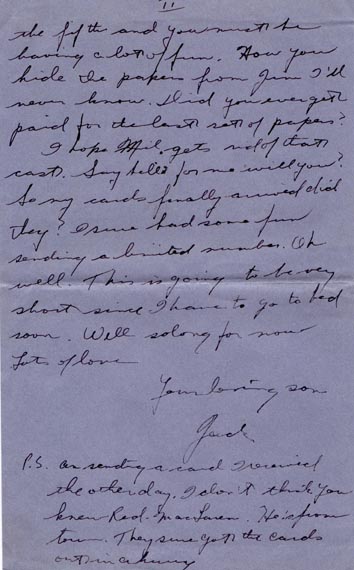 11
the fifth and you must be
having a lot of fun. How you
hide the papers from Jim I'll
never know. Did you ever get
paid for the last set of papers?
I hope Phil gets rid of that
cast. Say hello for me will you?
So my cards finally arrived did
they? I sure had some fun
sending a limited number. Oh
well. This is going to be very
short since I have to go to bed
soon. Well solong for now
Lots of love
Your loving son
Jack
P.S. am sending a card I received
the other day. I don't think you
knew Red MacLaren. He's from
town. They sure got the cards
out in a hurry